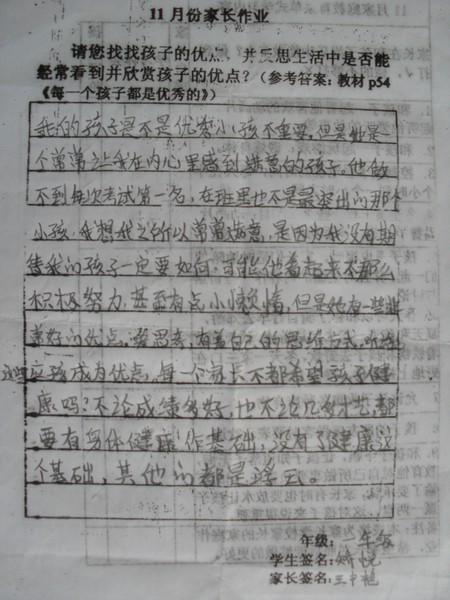 11月份家长作业
请您找找孩子的优点,并反思生活中是否能
经常看到并欣赏孩子的优点?(参考答案:教材p54
《每一个孩子都是优秀的》)
我的孩子是不是优秀小孩不重要,但是她是一
个常常让我在内心里感到满意的孩子。他做
不到每次考试第一名,在班里也不是最突出的那个
小孩,我想我之所以常常满意,是因为我没有期
待我的孩子一定要如何,可能他看起来不那么
积极努力,甚至有点小懒惰,但是她有一些
美好的优点,爱思考,有着自己的思维方式,
这些应该成为优点,每一个家长不都希望孩子健
康吗?不论成绩多好,也不论几多才艺,都
要有身体健康作基础,没有了健康这
个基础,其他的都是浮云。
年级:一年级
学生签名:
家长签名: